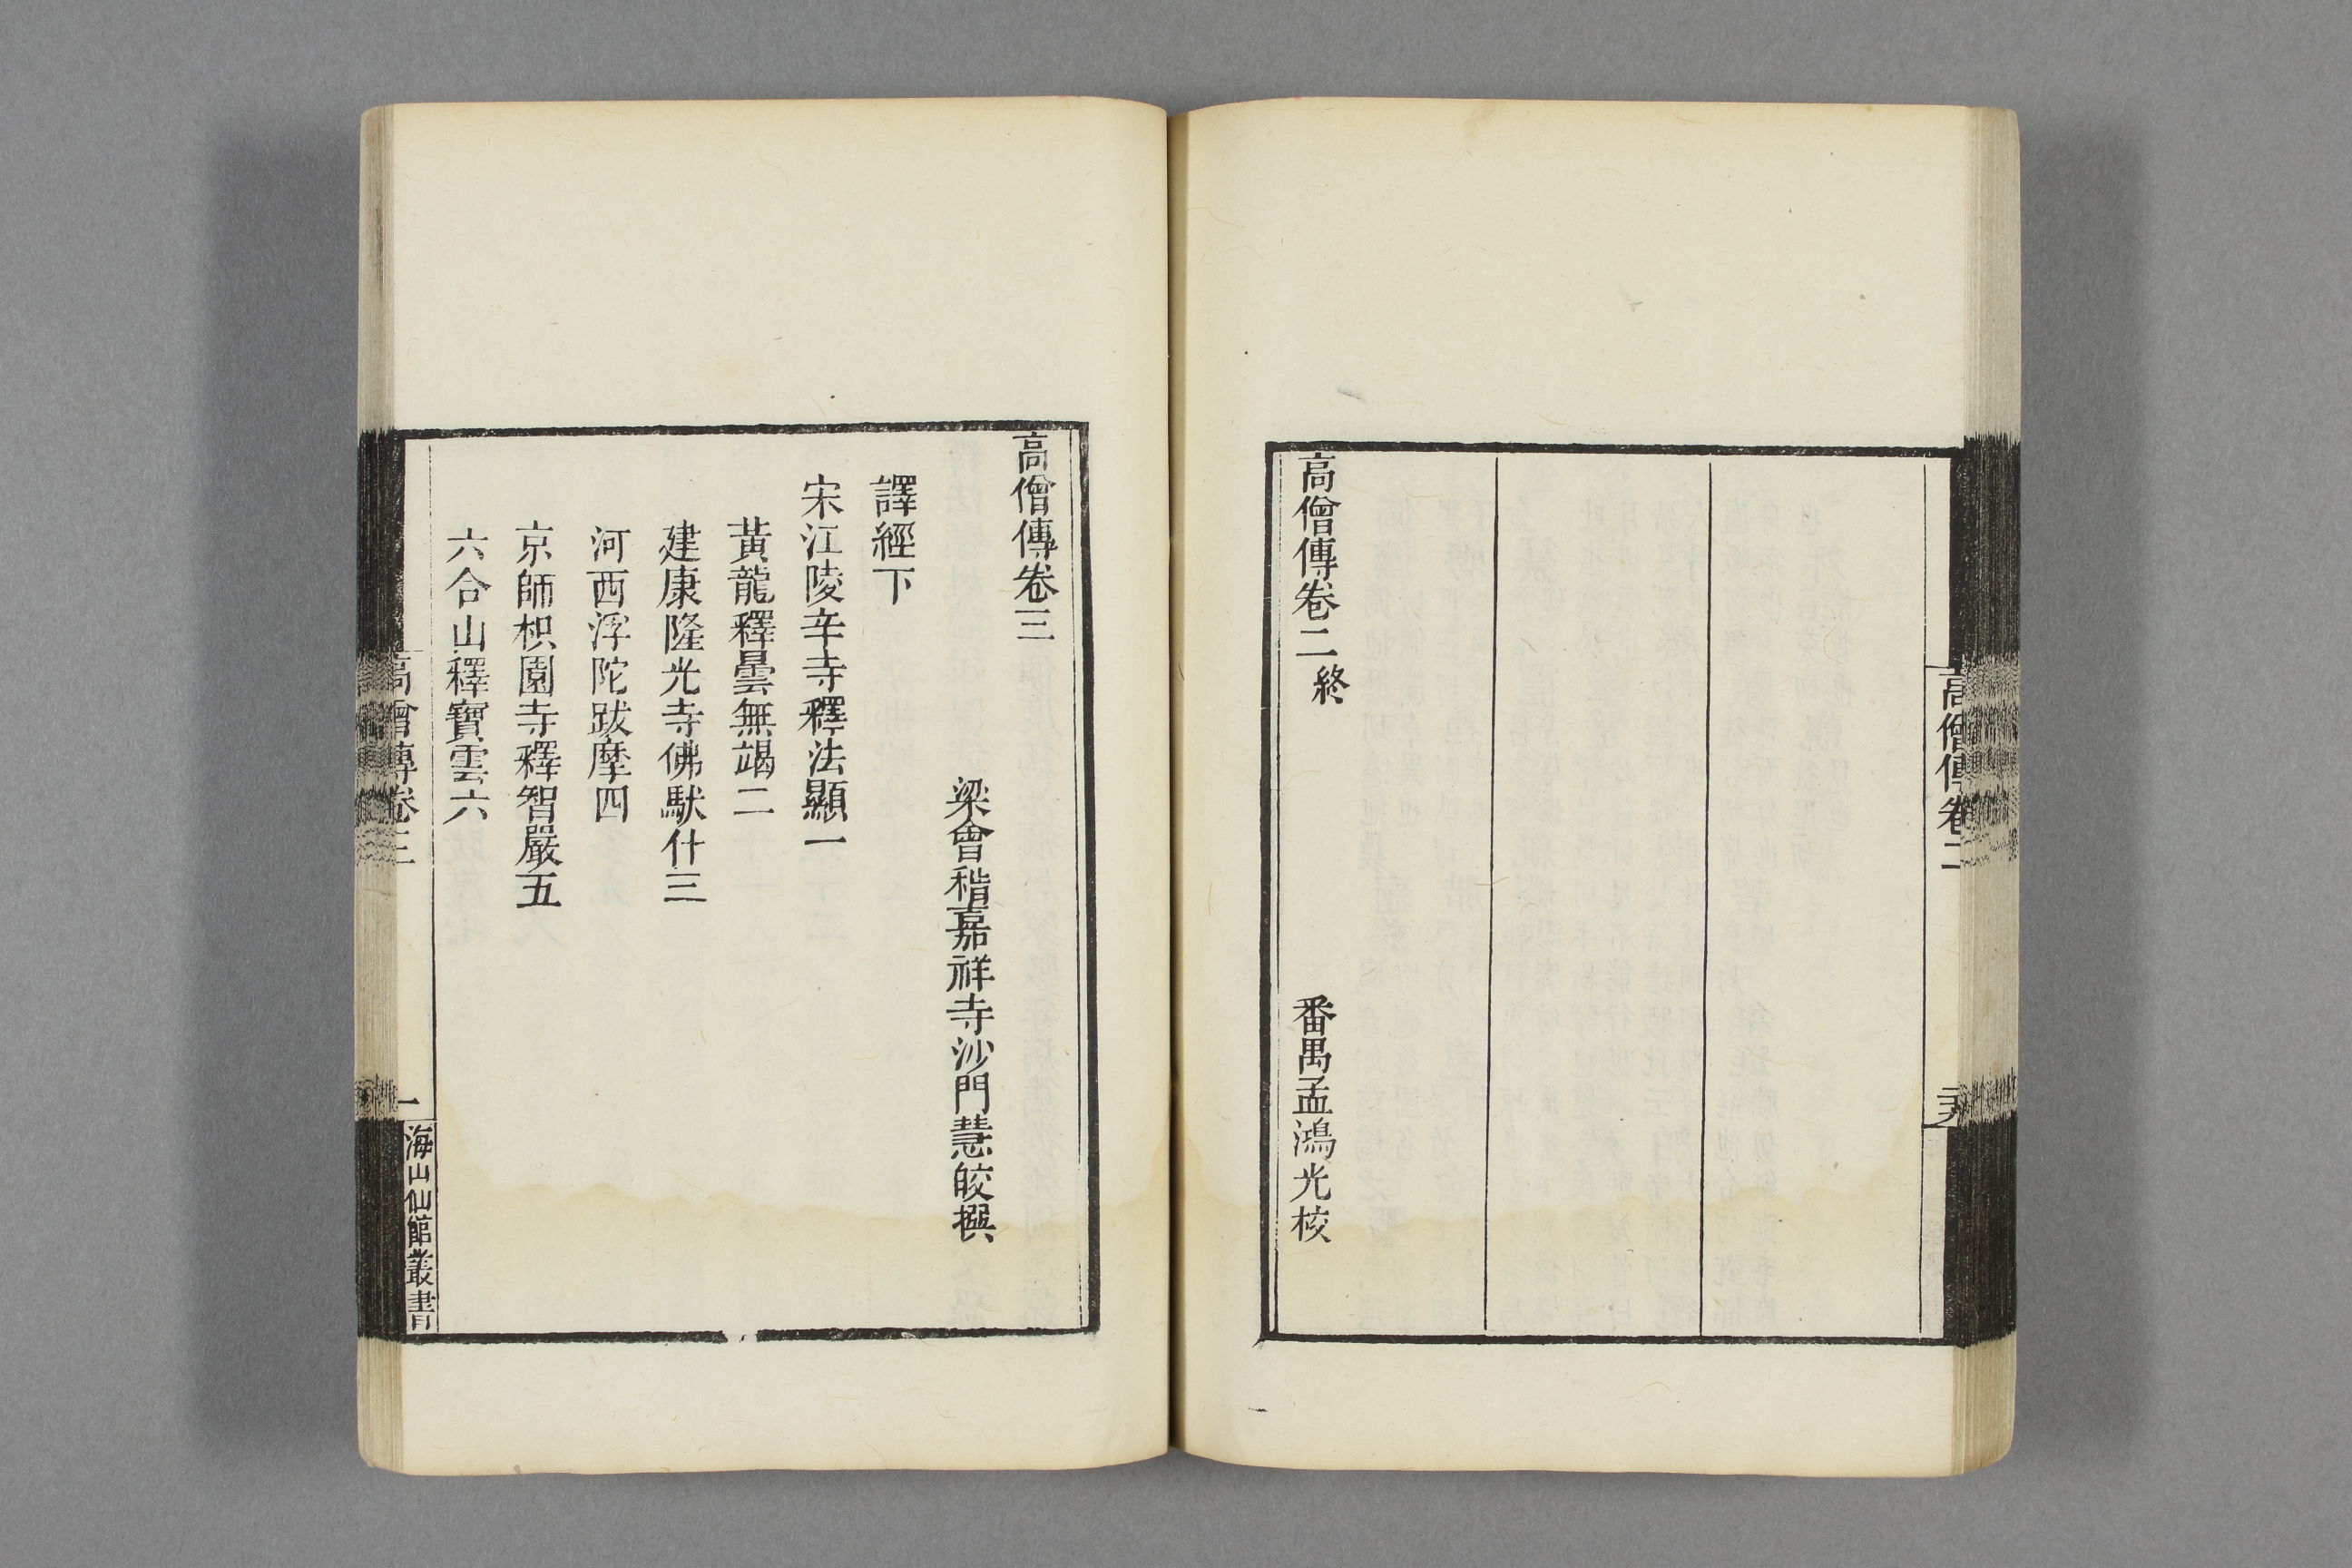 高僧傳卷二
高僧傳卷二 終
番禺孟鴻光校
高僧傳卷三
梁會稽嘉祥寺沙門慧皎撰
譯經下
宋江陵辛寺釋法顯一
黃龍釋曇無竭二
建康隆光寺佛馱什三
河西浮陀跋摩四
京師枳園寺釋智嚴五
六合山釋寶雲六
高僧傳卷三
一
海山仙館叢書